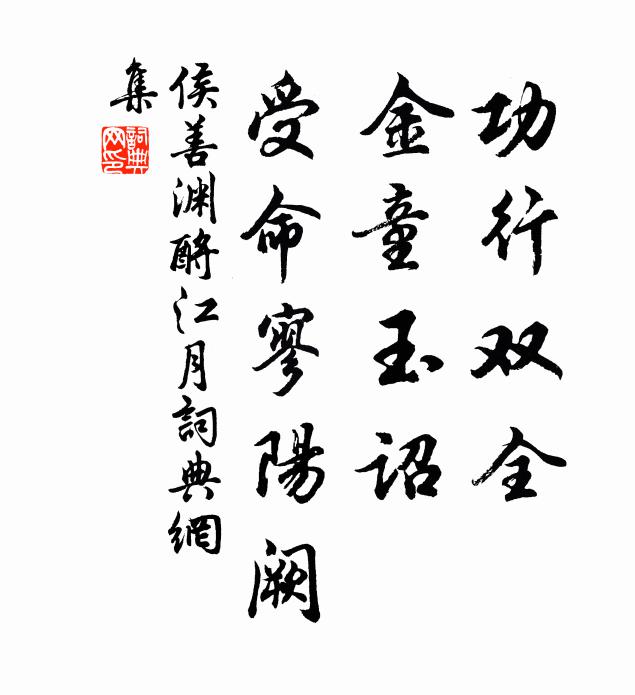 功行双全
金童玉诏
受命寥陽阙
侯善渊酹江月詞典網
集
詞典網印